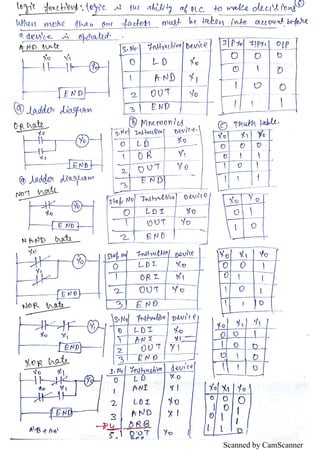 logic functions: logic is the ability of PLC to make decisions
when more than one factors must be taken into account before
a device is operated.
AND Gate
X0 X1 Y0
END
(a) ladder diagram
S.No Instruction Device
0 LD X0
1 AND X1
2 OUT Y0
3 END
I/P X0 I/P X1 O/P
0 0 0
0 1 0
1 0 0
1 1 1
OR Gate
X0 Y0
X1
END
(a) ladder diagram
(b) Mnemonics
S.No Instruction Device
0 LD X0
1 OR X1
2 OUT Y0
3 END
(c) Truth table
X0 X1 Y0
0 0 0
0 1 1
1 0 1
1 1 1
NOT Gate
X0 Y0
END
Step No Instruction Device
0 LDI X0
1 OUT Y0
2 END
X0 Y0
0 1
1 0
NAND Gate
X0 Y0
X1
END
Step No Instruction Device
0 LDI X0
1 ORI X1
2 OUT Y0
3 END
X0 X1 Y0
0 0 1
0 1 1
1 0 1
1 1 0
NOR Gate
X0 X1 Y1
END
S.No Instruction Device
0 LDI X0
1 ANI X1
2 OUT Y1
3 END
X0 X1 Y1
0 0 1
0 1 0
1 0 0
1 1 0
XOR Gate
X0 X1 Y0
X0 X1
END
S.No Instruction Device
0 LD X0
1 ANI X1
2 LDI X0
3 AND X1
4 ORB
5. OUT Y0
X0 X1 Y0
0 0 0
0 1 1
1 0 1
1 1 0
Scanned by CamScanner